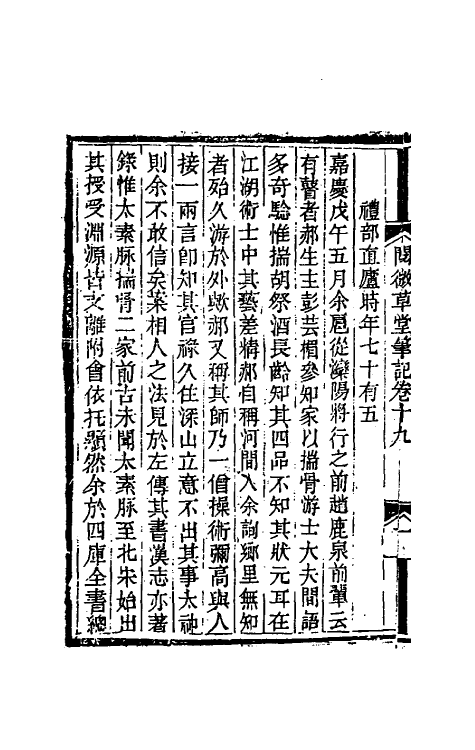 閱微草堂筆記卷十九
一
禮部直廬時年七十有五
嘉慶戊午五月余扈從灤陽將行之前趙鹿泉前輩云
有瞽者郝生主彭芸楣參知家以揣骨游士大夫間語
多奇驗惟揣胡祭酒長齡知其四品不知其狀元耳在
江湖術士中其藝差精郝自稱河間人余詢鄉里無知
者殆久游於外歟郝又稱其師乃一僧操術彌高與人
接一兩言卽知其官祿久住深山立意不出其事太神
則余不敢信矣案相人之法見於左傳其書漢志亦著
錄惟太素脈揣骨二家前古未聞太素脈至北宋始出
其授受淵源皆支離附會依托顯然余於四庫全書總